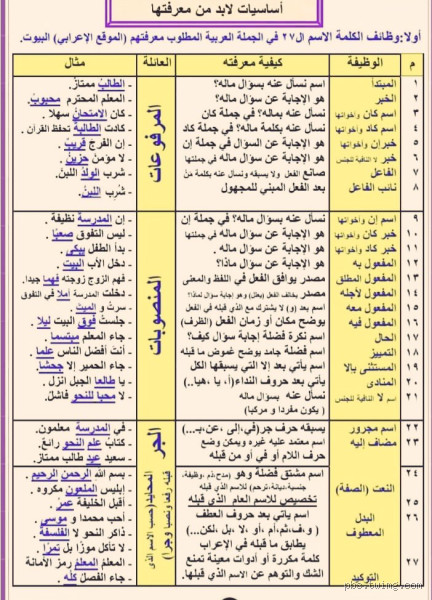 أساسيات لابد من معرفتها
أولا:وظائف الكلمة الاسم ال٢٧ في الجملة العربية المطلوب معرفتهم (الموقع الإعرابي) البيوت.
م الوظيفة كيفية معرفته العائلة مثال
المرفوعات
١ المبتدأ اسم نسأل عنه بسؤال ماله؟ - الطالبُ ممتازٌ.
٢ الخبر هو الإجابة عن سؤال ماله؟ - المعلم المحترم محبوبٌ.
٣ اسم كان وأخواتها نسأل عنه بماله؟ في جملة كان - كان الامتحانُ سهلا .
٤ اسم كاد وأخواتها نسأل عنه بكلمة ماله؟ في جملة كاد - كادت الطالبة تحفظ القرآن .
٥ خبر إن وأخواتها هو الإجابة عن السؤال في جملة إن - إن الفرجَ قريبٌ.
٦ خبر لا النافية للجنس هو الإجابة عن سؤال ماله؟ في جملتها - لا مؤمنَ حزينٌ.
٧ الفاعل صانع الفعل ولا يسبقه ونسأل عنه بكلمة مَنْ - شرب الولدُ اللبنَ.
٨ نائب الفاعل بعد الفعل المبني للمجهول - شُرب اللبنُ.
المنصوبات
٩ اسم إن وأخواتها نسأل عنه بسؤال ماله؟ في جملة إن - إن المدرسةَ نظيفة .
١٠ خبر كان وأخواتها هو الإجابة عن سؤال ماله؟ في جملتها - ليس التفوق صعبًا .
١١ خبر كاد وأخواتها هو الإجابة عن سؤال ماله؟ في جملتها - بدأ الطفل يبكي .
١٢ المفعول به هو الإجابة عن سؤال ماذا؟ - دخل الأب البيت .
١٣ المفعول المطلق مصدر يوافق الفعل في اللفظ والمعنى - فهم الزوج زوجته فهما جيدا.
١٤ المفعول لأجله مصدر يخالف الفعل وهو إجابة سؤال لماذا؟ - دخلت المدرسة أملا في التفوق
١٥ المفعول معه اسم بعد (و) لا يشترك مع الذي قبله في الفعل - سرت و الميت
١٦ المفعول فيه يوضح مكان أو زمان الفعل (الظرف) - جلستُ فوق البيت ليلا .
١٧ الحال اسم نكرة فضلة إجابة سؤال كيف؟ - جاء المعلم مبتسما .
١٨ التمييز اسم فضلة جامد يوضح غموض ما قبله - أنت أفضل الناس علما .
١٩ المستثنى بإلا اسم يأتي بعد إلا التي يسبقها الكل - جاء الحمير إلا جحشا.
٢٠ المنادى يأتي بعد حروف النداء(أ، يا ،هيا..) - يا طالعا الجبل انزل .
٢١ اسم لا النافية للجنس نسأل عنه بسؤال ماله؟ - لا محبا للنحو فاشلٌ.
( يكون مفردا و مركبا)
الجر
٢٢ اسم مجرور يسبقه حرف جر(في،إلى ،عن،بـ...) - في المدرسة معلمون.
٢٣ مضاف إليه اسم معتمد عليه غيره ويمكن وضع - كتابُ علم النحو رائعٌ.
حرف اللام أو في أو من قبله - سعيد عيد طالب ممتاز.
المحايد(حسب الاسم الذي قبله رفعا ونصبا وجرا)
٢٤ النعت (الصفة) اسم مشتق فضلة وهو (مدح،ذم،وظيفة، - بسم الله الرحمن الرحيم .
جنسية،ديانة،ترحم) للاسم الذي قبله - إبليس الملعون مكروه .
٢٥ البدل تخصيص للاسم العام الذي قبله - أقبل الخليفة عمر .
٢٦ المعطوف اسم يأتي بعد حروف العطف - أحب محمدا و موسى .
( و،ف،ثم،أم ،أو ،لا ،بل،لكن...) - ذاكر النحو لا الفلسفة .
يطابق ما قبله في الإعراب - لا تأكل موزًا بل تمرًا .
٢٧ التوكيد كلمة مكررة أو أدوات معينة تمنع - المعلم المعلم رمز الأمانة
الشك والتوهم عن الاسم الذي قبلها. - جاء الفصل كله .